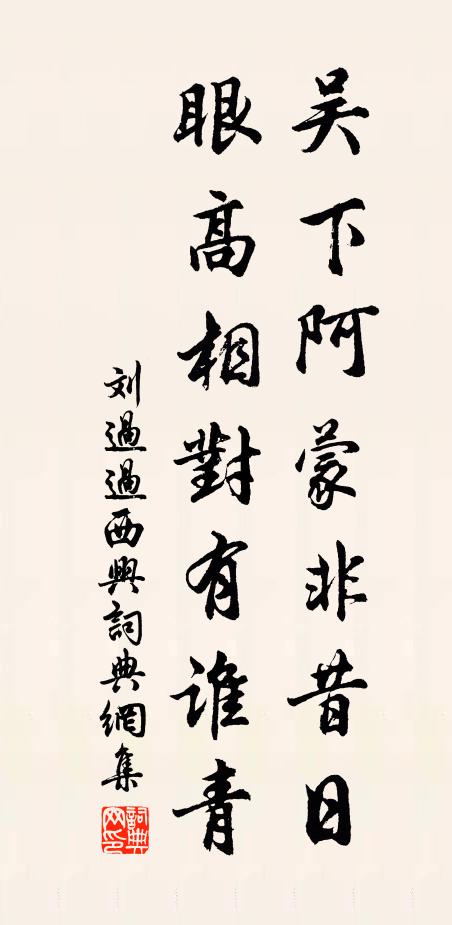 吴下阿蒙非昔日
眼高相對有誰青
刘過過西興詞典網集
詞典网印